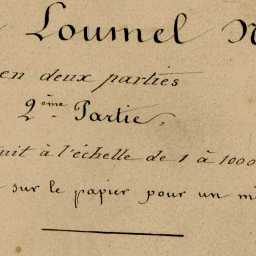 Loumel
en deux parties
2ème Partie.
à l'échelle de 1 à 1000
sur le papier pour un